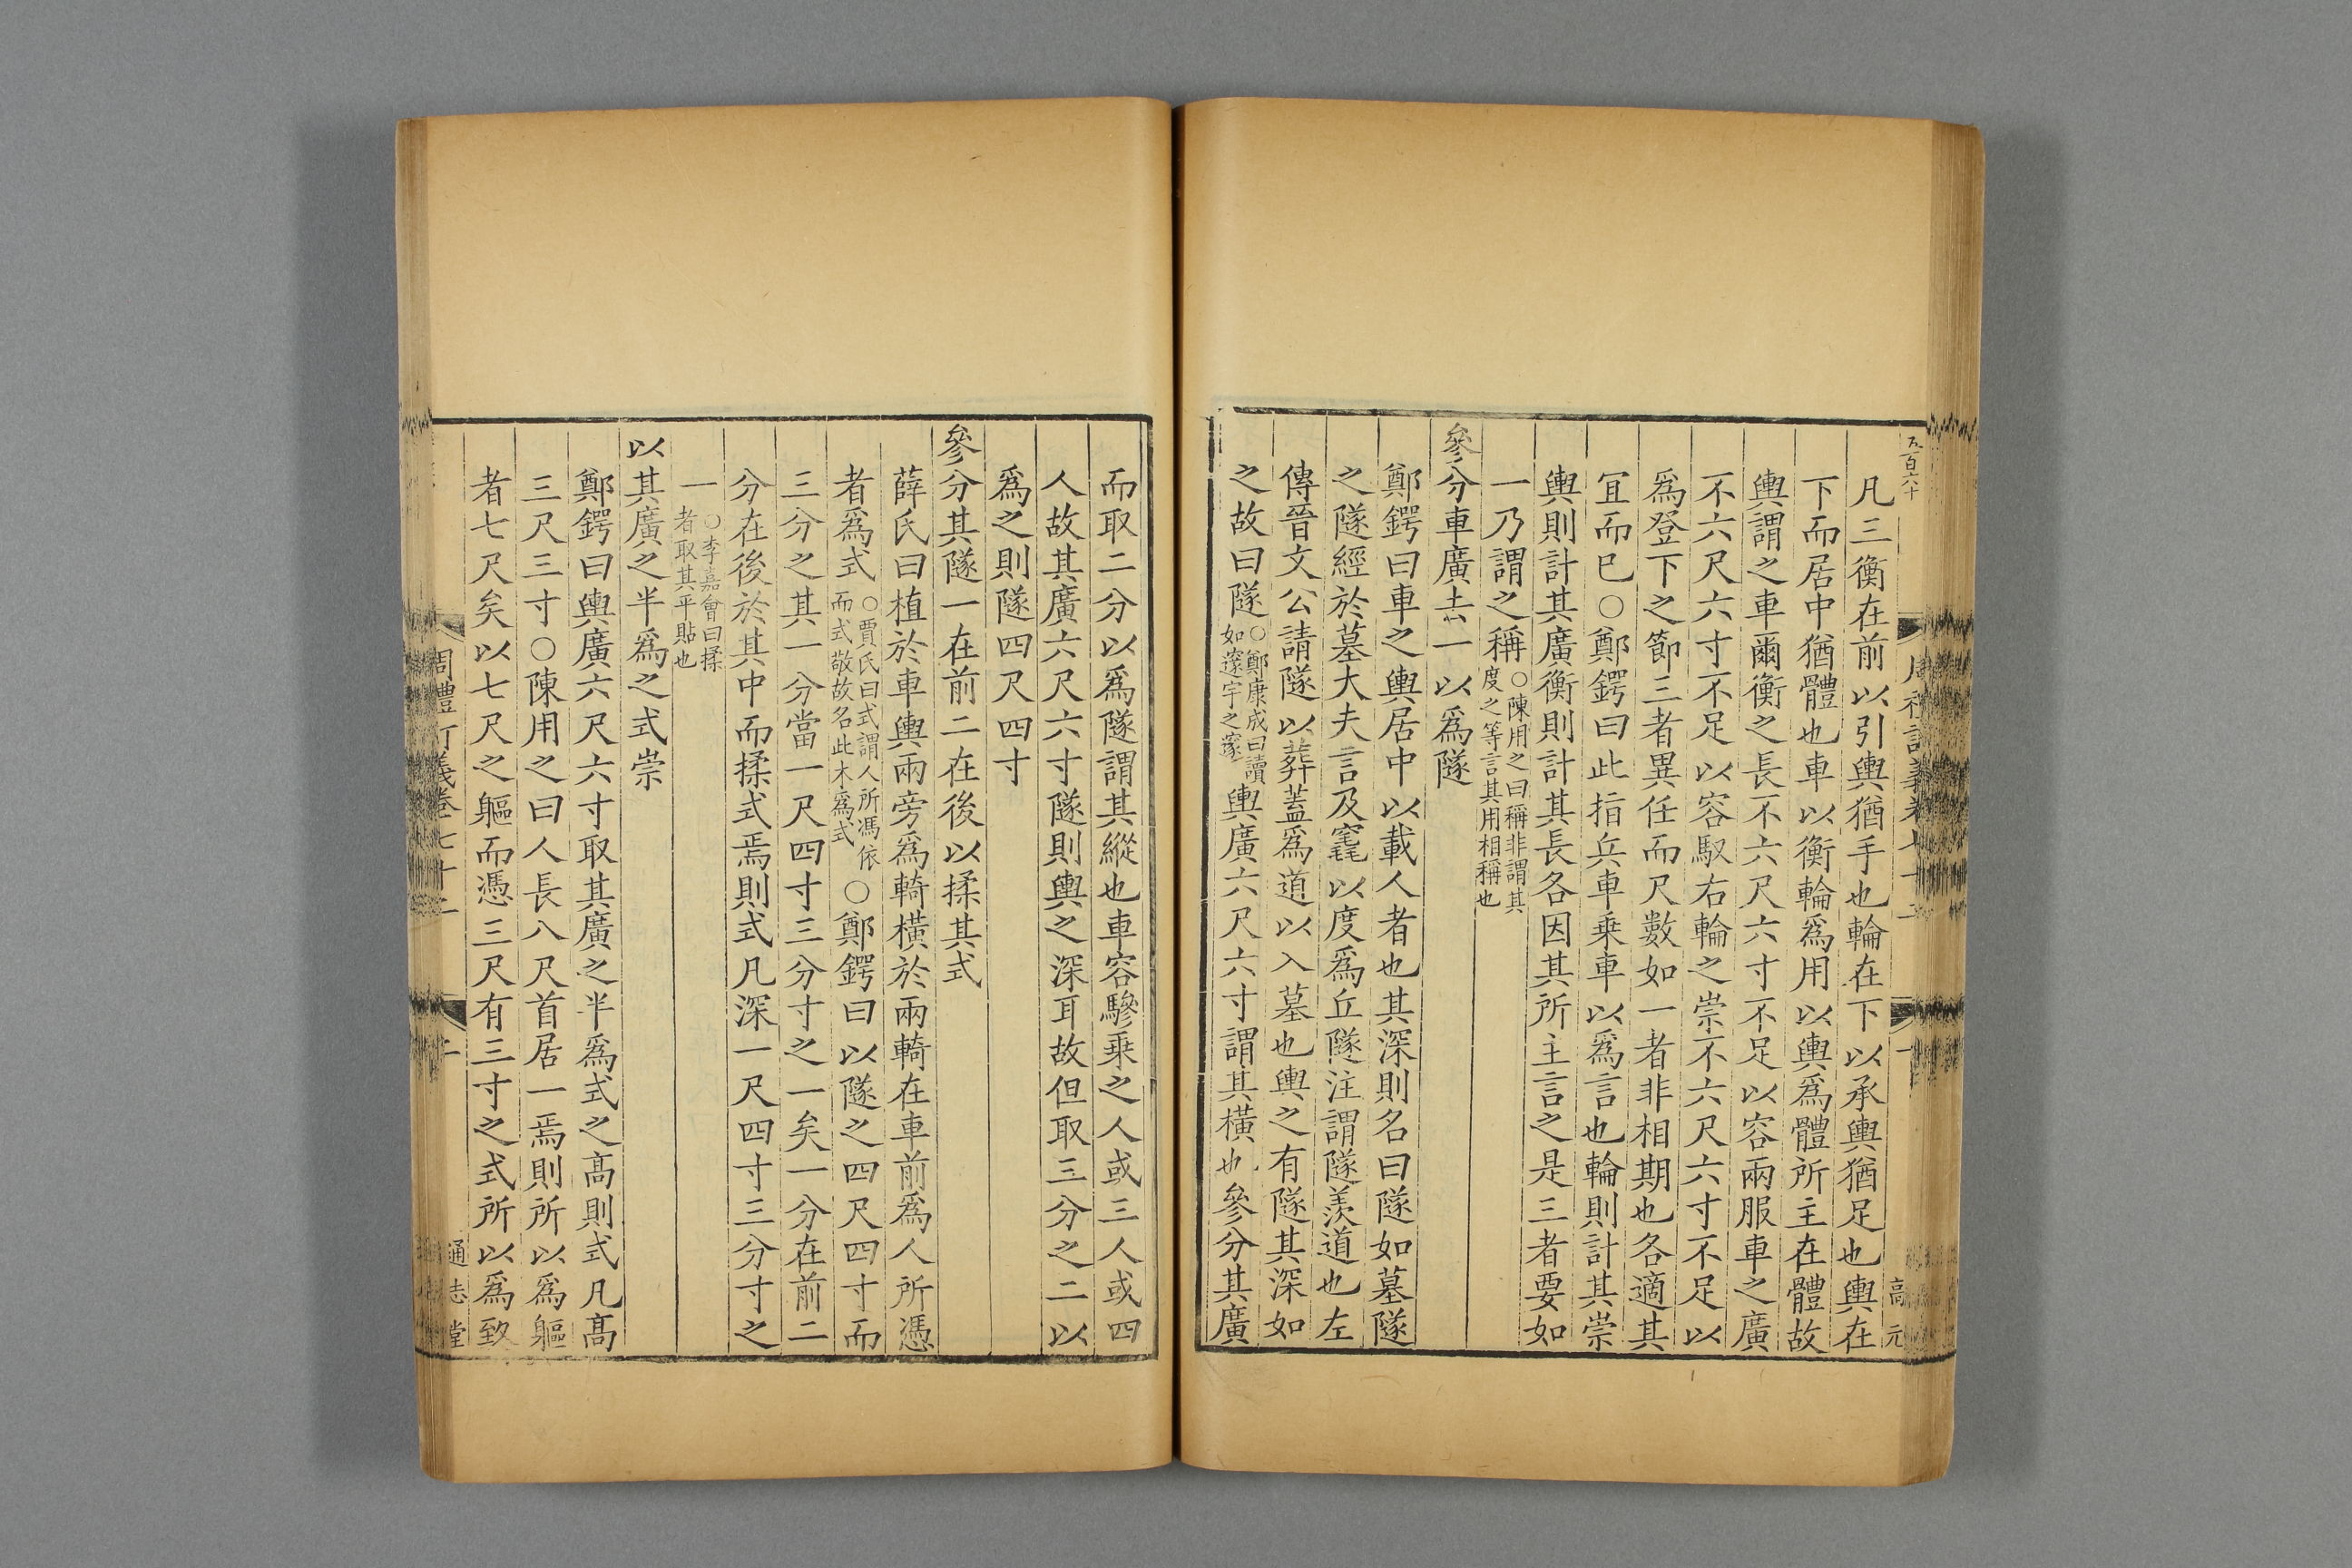 五百六十
高元
凡三衡在前以引輿猶手也輪在下以承輿猶足也輿在
下而居中猶體也車以衡輪爲用以輿爲體所主在體故
輿謂之車爾衡之長不六尺六寸不足以容兩服車之廣
不六尺六寸不足以容馭右輪之崇不六尺六寸不足以
爲登下之節三者異任而尺數如一者非相期也各適其
冝而已○鄭鍔曰此指兵車乗車以爲言也輪則計其崇
輿則計其廣衡則計其長各因其所主言之是三者要如
一乃謂之稱○陳用之曰稱非謂其度之等言其用相稱也
參分車廣去一以爲隧
鄭鍔曰車之輿居中以載人者也其深則名曰隧如墓隧
之隧經於墓大夫言及竁以度爲丘隧注謂隧羡道也左
傳晉文公請隧以葬蓋爲道以入墓也輿之有隧其深如
之故曰隧○鄭康成曰讀如邃宇之邃輿廣六尺六寸謂其橫也參分其廣
而取二分以爲隧謂其縱也車容驂乗之人或三人或四
人故其廣六尺六寸隧則輿之深耳故但取三分之二以
爲之則隧四尺四寸
參分其隧一在前二在後以揉其式
薛氏曰植於車輿兩旁爲輢橫於兩輢在車前爲人所憑
者爲式○賈氏曰式謂人所馮依而式敬故名此木爲式○鄭鍔曰以隧之四尺四寸而
三分之其一分當一尺四寸三分寸之一矣一分在前二
分在後於其中而揉式焉則式凡深一尺四寸三分寸之
一○李嘉會曰揉者取其平貼也
以其廣之半爲之式崇
鄭鍔曰輿廣六尺六寸取其廣之半爲式之高則式凡高
三尺三寸○陳用之曰人長八尺首居一焉則所以爲軀
者七尺矣以七尺之軀而憑三尺有三寸之式所以爲致
周禮訂義卷七十二
通志堂